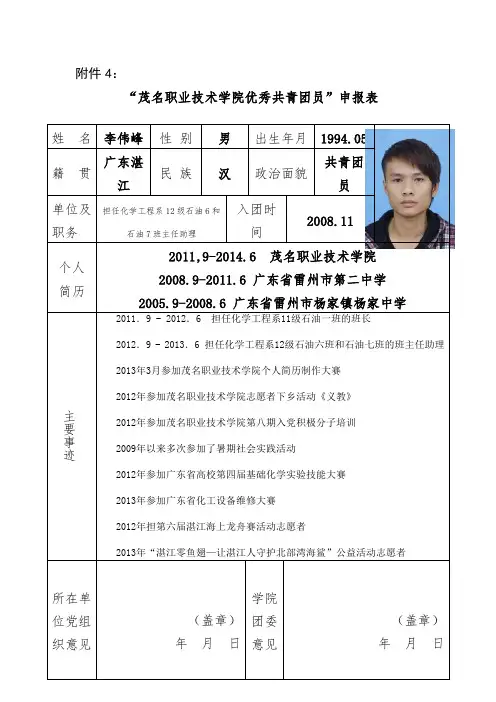 附件 4：
“茂名职业技术学院优秀共青团员”申报表
姓 名 李伟峰 性 别 男 出生年月 1994.05
籍 贯 广东湛江 民 族 汉 政治面貌 共青团员
单位及职务 担任化学工程系 12 级石油 6 和石油 7 班主任助理 入团时间 2008.11
个人简历
2011,9-2014.6 茂名职业技术学院
2008.9-2011.6 广东省雷州市第二中学
2005.9-2008.6 广东省雷州市杨家镇杨家中学
主要事迹
2011．9 - 2012．6 担任化学工程系11级石油一班的班长
2012．9 - 2013．6 担任化学工程系12级石油六班和石油七班的班主任助理
2013年3月参加茂名职业技术学院个人简历制作大赛
2012年参加茂名职业技术学院志愿者下乡活动《义教》
2012年参加茂名职业技术学院第八期入党积极分子培训
2009年以来多次参加了暑期社会实践活动
2012年参加广东省高校第四届基础化学实验技能大赛
2013年参加广东省化工设备维修大赛
2012年担第六届湛江海上龙舟赛活动志愿者
2013年“湛江零鱼翅—让湛江人守护北部湾海鲨”公益活动志愿者
所在单位党组织意见
（盖章）
年 月 日
学院团委意见
（盖章）
年 月 日